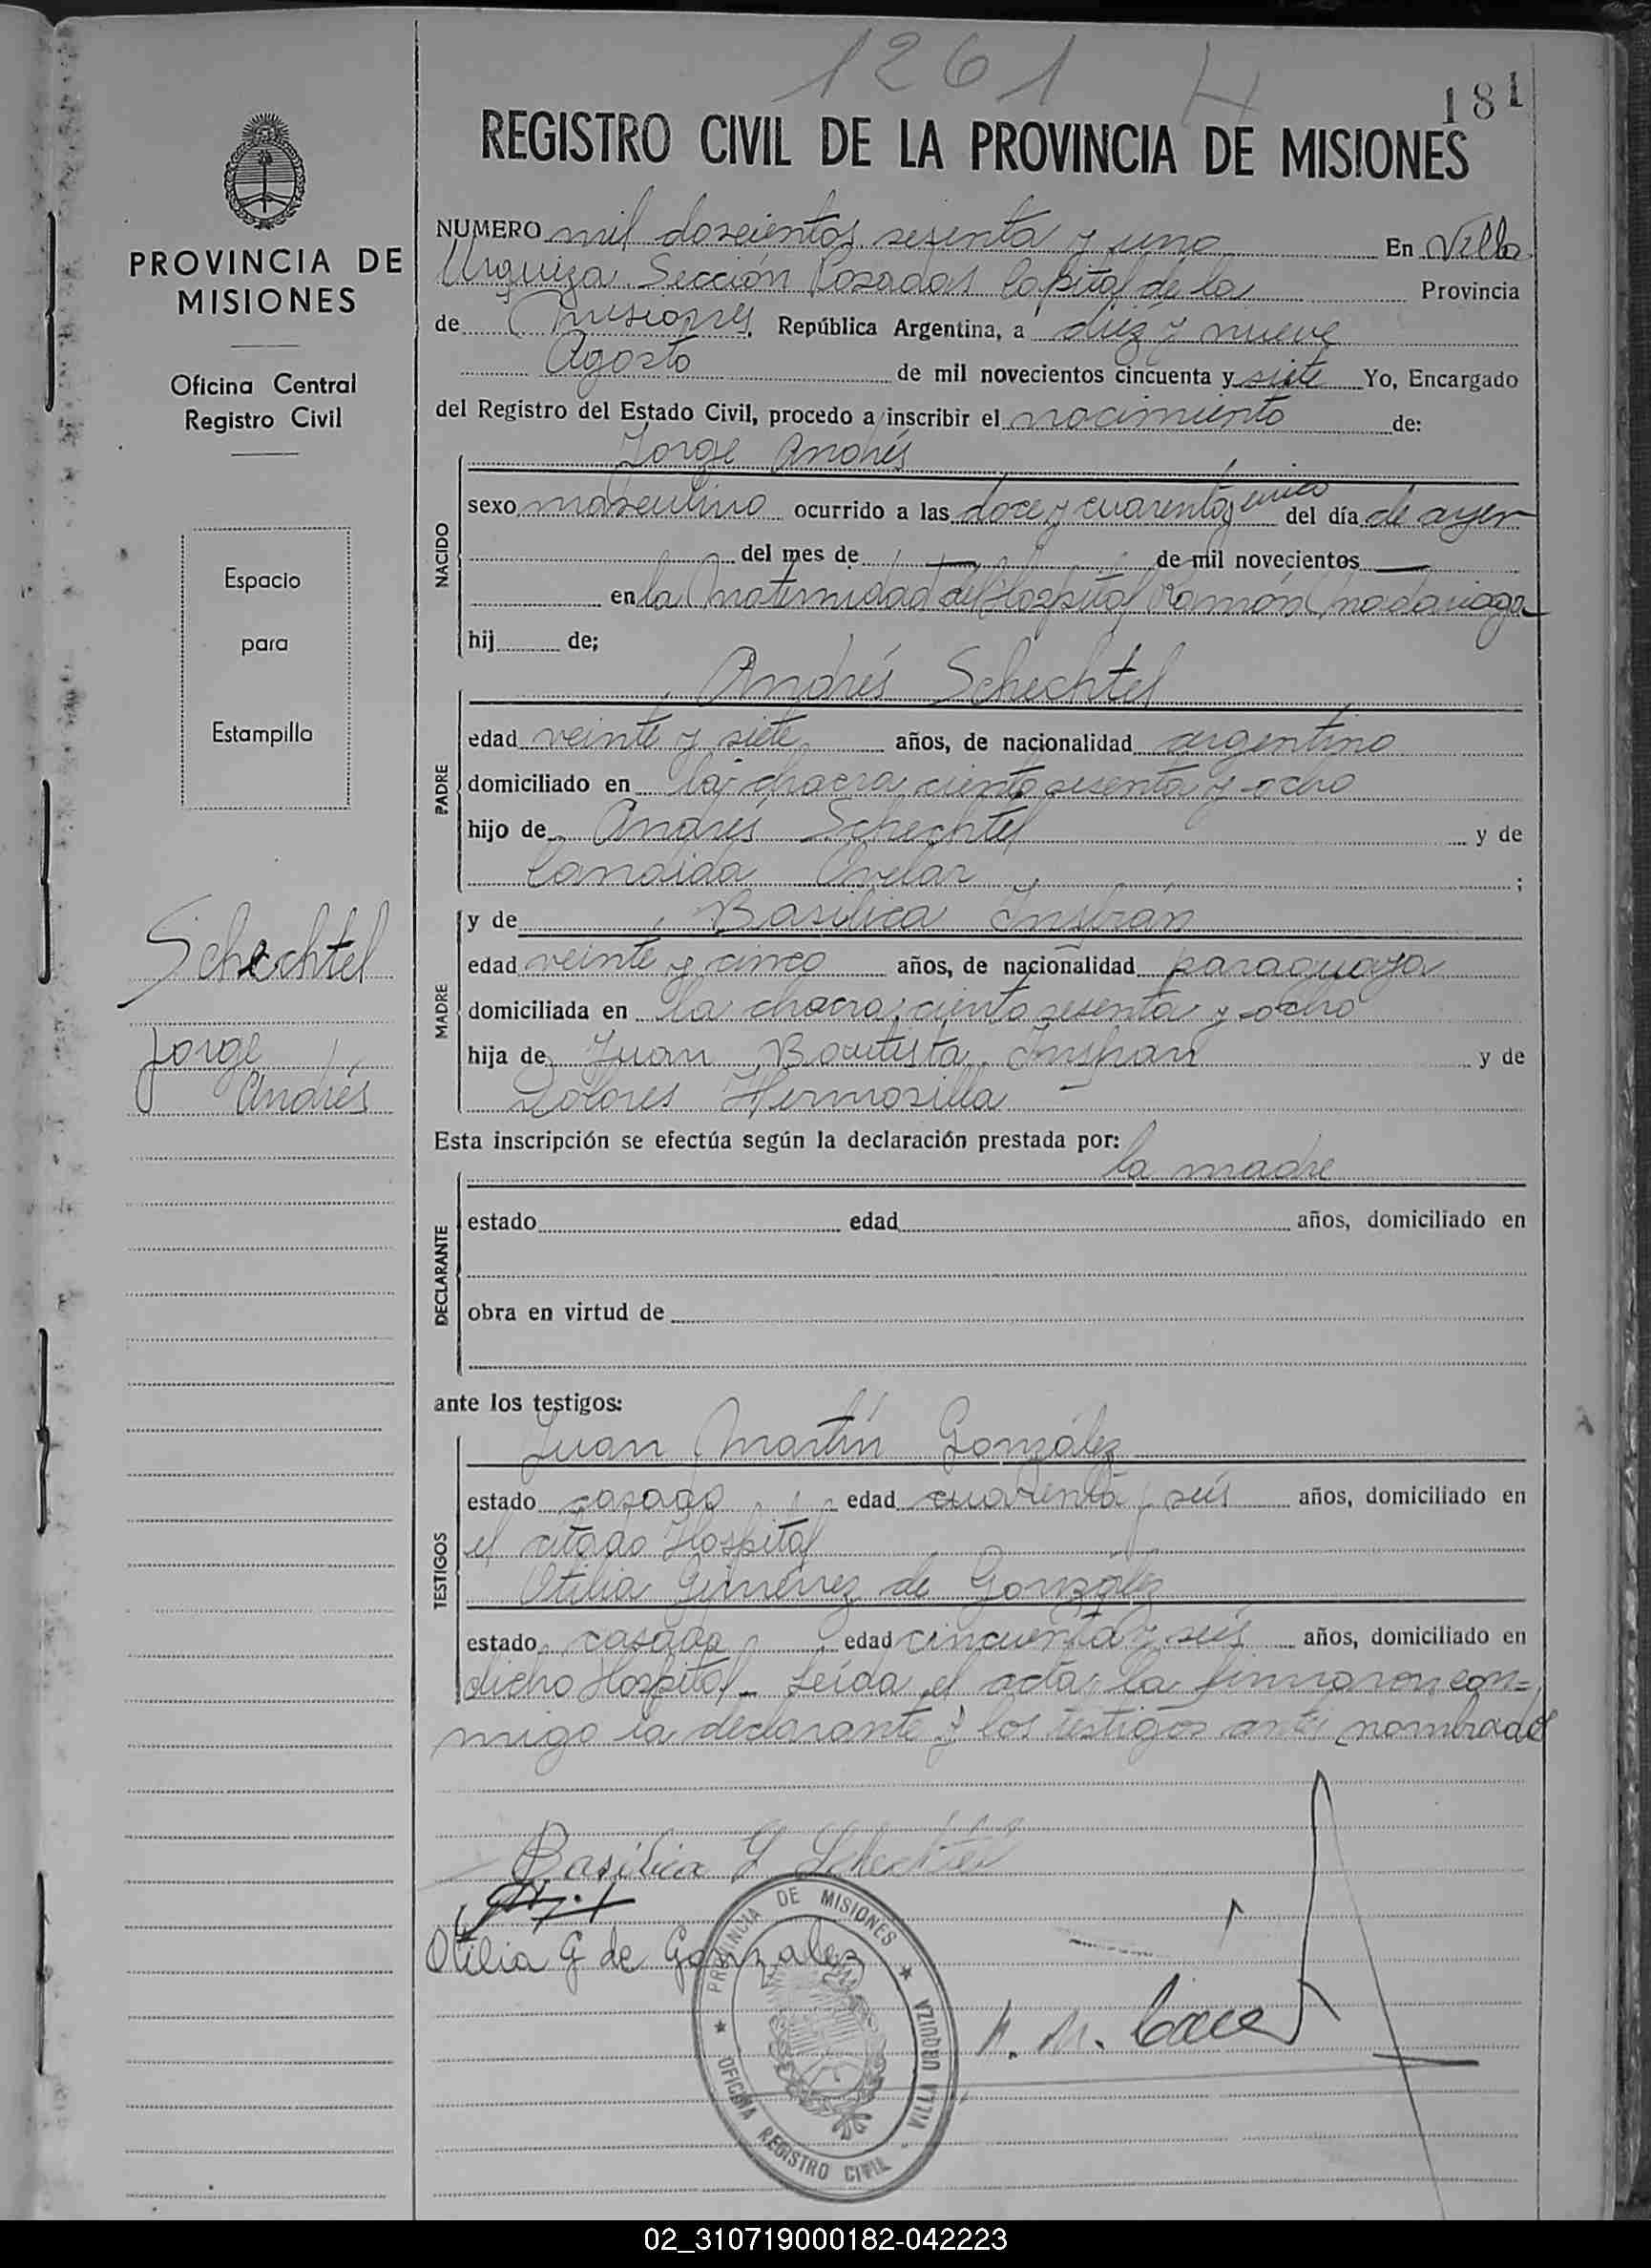 1261 H
181
REGISTRO CIVIL DE LA PROVINCIA DE MISIONES
PROVINCIA DE
MISIONES
Oficina Central
Registro Civil
Espacio
para
Estampilla
Schechtel
Jorge
Andrés
NUMERO mil doscientos sesenta y uno En Villa
Urquiza Sección Posadas Capital de la Provincia
de Misiones República Argentina, a diez y nueve
Agosto de mil novecientos cincuenta y siete Yo, Encargado
del Registro del Estado Civil, procedo a inscribir el nacimiento de:
NACIDO
Jorge Andrés
sexo masculino ocurrido a las doce y cuarenta y cinco del día de ayer
del mes de — de mil novecientos —
en la Maternidad del Hospital Ramón Madariaga
hij de;
PADRE
Andrés Schechtel
edad veinte y siete años, de nacionalidad argentino
domiciliado en la chacra ciento sesenta y ocho
hijo de Andrés Schechtel y de
Candida Avelar ;
MADRE
y de Basilica Insfran
edad veinte y cinco años, de nacionalidad paraguaya
domiciliada en la chacra ciento sesenta y ocho
hija de Juan Bautista Insfran y de
Dolores Hermosilla
Esta inscripción se efectúa según la declaración prestada por:
la madre
DECLARANTE
estado edad años, domiciliado en
obra en virtud de
ante los testigos:
TESTIGOS
Juan Martín González
estado casado edad cuarenta y seis años, domiciliado en
el citado Hospital
Otilia Giménez de González
estado casada edad cincuenta y seis años, domiciliado en
dicho Hospital - Leída el acta la firmaron con=
migo la declarante y los testigos antes nombrados
Basilica I Schechtel
Otilia G de Gonzalez
PROVINCIA DE MISIONES ★ VILLA URQUIZA
★ OFICINA REGISTRO CIVIL
02_310719000182-042223